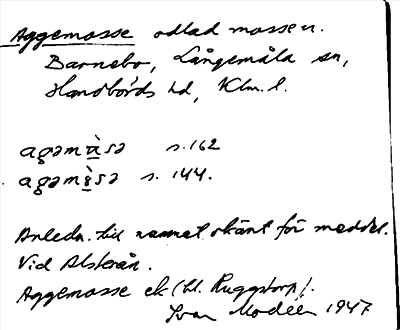 Aggemosse odlad mosse u.
Barnebo, Långemåla sn,
Handbörds hd, Klm. l.
agəmàsə s. 162
agəmìsə s. 144.
Anledn. till namnet okänt för meddel.
Vid Alsterån.
Aggemosse ek (bl. Ruggstorp).
Ivar Modéer 1947